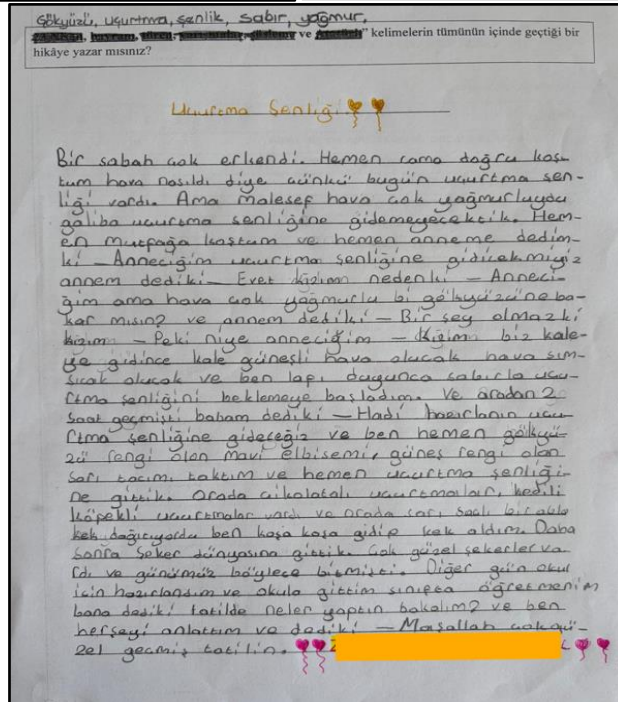 Gökyüzü, uçurtma, şenlik, sabır, yağmur,
ve " kelimelerin tümünün içinde geçtiği bir
hikâye yazar mısınız?
Uçurtma Şenliği
Bir sabah çok erkendi. Hemen cama doğru koş-
tum hava nasıldı diye çünkü bugün uçurtma şen-
liği vardı. Ama malesef hava çok yağmurluydu
galiba uçurtma şenliğine gidemeyecektik. Hem-
en mutfağa koştum ve hemen anneme dedim-
ki – Anneciğim uçurtma şenliğine gidicekmiyiz
annem dediki – Evet kızım nedenki – Anneci-
ğim ama hava çok yağmurlu bi gökyüzüne ba-
kar mısın? ve annem dediki – Bir şey olmazki
kızım – Peki niye anneciğim – Kızım biz kale-
ye gidince kale güneşli hava olucak hava sım-
sıcak olucak ve ben lapı duyunca sabırla uçu-
rtma şenliğini beklemeye başladım. Ve aradan 2
saat geçmişti babam dediki – Hadi hazırlanın uçu-
rtma şenliğine gideceğiz ve ben hemen gökyü-
zü rengi olan mavi elbisemi, güneş rengi olan
sarı tacımı taktım ve hemen uçurtma şenliği-
ne gittik. Orada çikolatalı uçurtmalar, kedili
köpekli uçurtmalar vardı ve orada sarı saçlı bir abla
kek dağıtıyordu ben koşa koşa gidip kek aldım. Daha
sonra Şeker dünyasına gittik. Çok güzel şekerler va-
rdı ve günümüz böylece bitmişti. Diğer gün okul
için hazırlandım ve okula gittim sınıfta öğretmenim
bana dediki tatilde neler yaptın bakalım? ve ben
herşeyi anlattım ve dediki – Maşallah çok gü-
zel geçmiş tatilin.